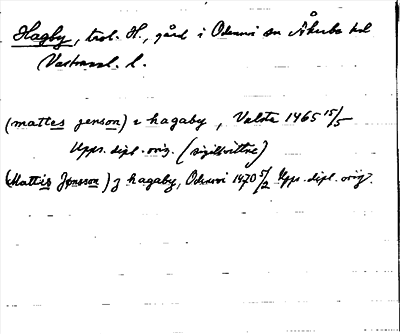 Hagby, trol. H., gård i Odensvi sn Åkerbo hd
Västmanl. l.
(mattes jenson) i hagaby, Valsta 1465 15/5
Upps. dipl. orig. (sigillvittne)
(Mattis Jønsson) j hagaby, Odensvi 1470 5/2 Upps. dipl. orig.